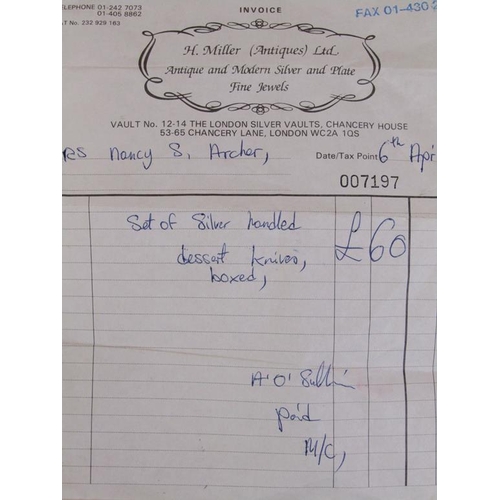 TELEPHONE 01-242 7073
01-405 8862
VAT No. 232 929 163
INVOICE
FAX 01-430
H. Miller (Antiques) Ltd.
Antique and Modern Silver and Plate
Fine Jewels
VAULT No. 12-14 THE LONDON SILVER VAULTS, CHANCERY HOUSE
53-65 CHANCERY LANE, LONDON WC2A 1QS
Nancy S. Archer,
Date/Tax Point 6th Apr
007197
Set of Silver handled £60
dessert knives,
boxed,
A.O'Sullivan
paid
M/C,